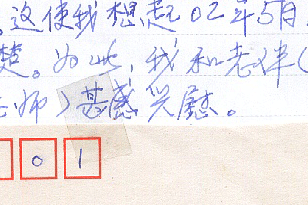 。这使我想起02年5月
楚。为此，我和老伴（
老师）甚感欣慰。
01